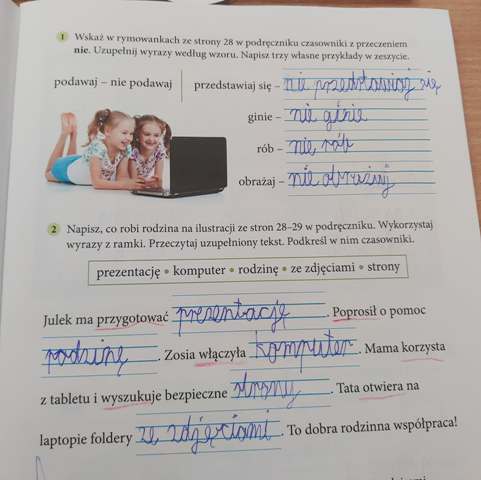 1 Wskaż w rymowankach ze strony 28 w podręczniku czasowniki z przeczeniem
nie. Uzupełnij wyrazy według wzoru. Napisz trzy własne przykłady w zeszycie.
podawaj – nie podawaj
przedstawiaj się – nie przedstawiaj się
ginie – nie ginie
rób – nie rób
obrażaj – nie obrażaj
2 Napisz, co robi rodzina na ilustracji ze stron 28–29 w podręczniku. Wykorzystaj
wyrazy z ramki. Przeczytaj uzupełniony tekst. Podkreśl w nim czasowniki.
prezentację • komputer • rodzinę • ze zdjęciami • strony
Julek ma przygotować prezentację. Poprosił o pomoc
rodzinę. Zosia włączyła komputer. Mama korzysta
z tabletu i wyszukuje bezpieczne strony. Tata otwiera na
laptopie foldery ze zdjęciami. To dobra rodzinna współpraca!